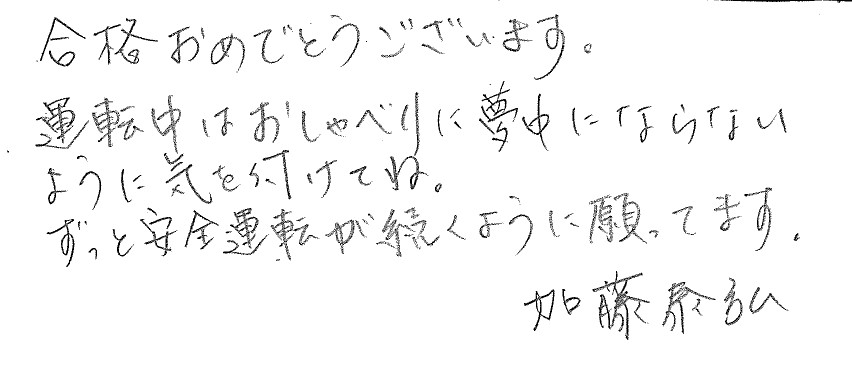 合格おめでとうございます。
運転中はおしゃべりに夢中にならない
ように気を付けてね。
ずっと安全運転が続くように願ってます.
加藤泰弘